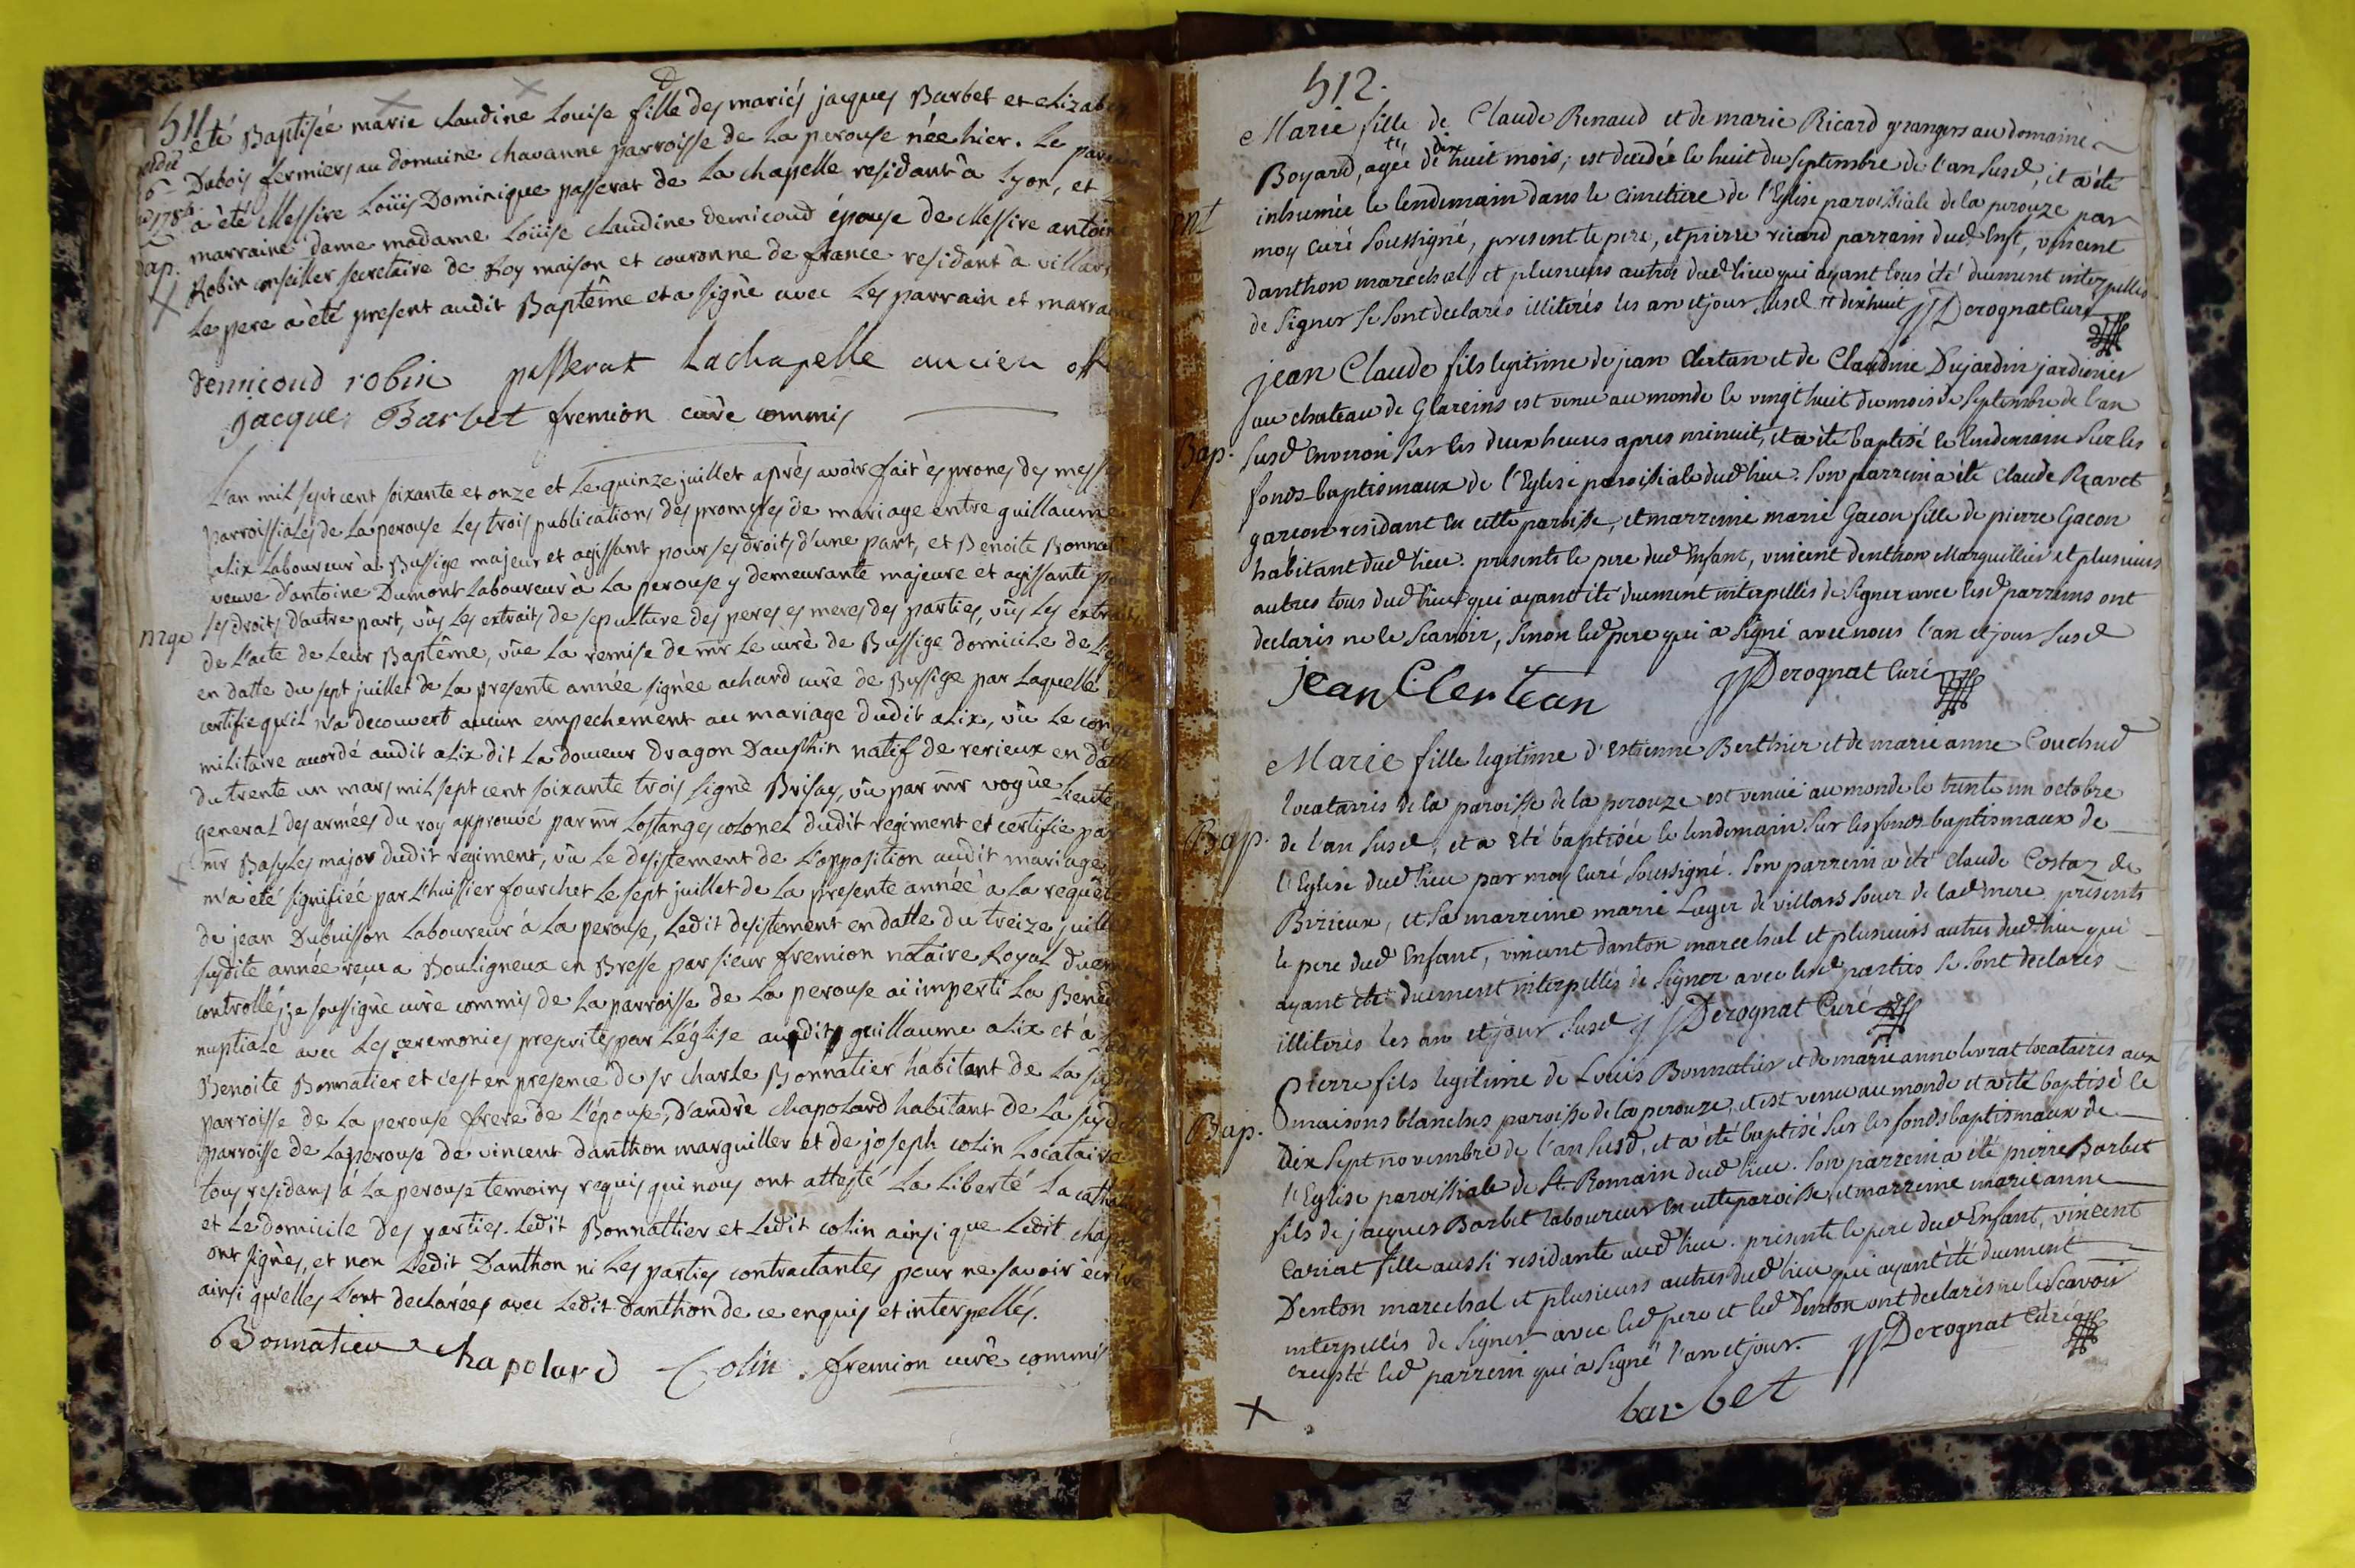 511
été Baptisée marie claudine Louise fille des mariés jacques Barbet et elizabeth
Dubois fermiers au domaine chavanne parroisse de La perouse née hier. Le parrain
a été Messire Loüis Dominique passerat de La chapelle residant à Lyon, et
bap. marraine dame madame Loüise claudine demicoud épouse de Messire antoine
Robin conseiller secretaire de Roy maison et couronne de france residant à villars
Le pere a été present audit Baptême et a signé avec Les parrain et marraine
Demicoud robin passerat Lachapelle ancien officier
jacques Barbet fremion curé commis
L'an mil sept cent soixante et onze et Le quinze juillet après avoir fait es prones des messes
parroissiales de La perouse Les trois publications des promesses de mariage entre guillaume
alix Laboureur à Bussige majeur et agissant pour ses droits d'une part, et Benoite Bonnatier
veuve d'antoine Dumont Laboureur à La perouse y demeurante majeure et agissante pour
mge ses droits d'autre part, vûs Les extraits de sepulture des peres et meres des parties, vûs Les extraits
de L'acte de Leur Baptême, vûe La remise de mr Le curé de Bussige domicile de L'epoux
en datte du sept juillet de La presente année signée achard curé de Bussige par Laquelle il
certifie qu'il n'a decouvert aucun empechement au mariage dudit alix, vû Le congé
militaire accordé audit alix dit La douceur dragon Dauphin natif de rerieux en datte
du trente un mars mil sept cent soixante trois signé Brisay, vû par mr vogüe Lieutenant
general des armées du roy approuvé par mr Lostanges colonel dudit regiment et certifié par
mr Basyles major dudit regiment, vû Le desistement de L'opposition audit mariage
m'a été signifiée par L'huissier fourchet Le sept juillet de La presente année à La requête
de jean Dubuisson Laboureur à La perouse, Ledit desistement en datte du treize juillet
susdite année reçu a Bouligneux en Bresse par sieur fremion notaire Royal duement
controllé, je soussigné curé commis de La parroisse de La perouse ai imperti La Bened
nuptiale avec Les ceremonies prescrites par L'église audit guillaume alix et à Ladite
Benoite Bonnatier et c'est en presence de sr charle Bonnatier habitant de La susdite
parroisse de La perouse frere de L'épouse, d'andré chapolard habitant de La susdite
parroisse de Laperouse de vincent danthon marguiller et de joseph colin Locataire
tous residans à La perouse temoins requis qui nous ont attesté La Liberté La catholicité
et Le domicile des parties. Ledit Bonnattier et Ledit colin ainsi que Ledit chapolard
ont signés, et non Ledit Danthon ni Les parties contractantes pour ne savoir écrire
ainsi qu'elles L'ont declarées avec Ledit danthon de ce enquis et interpellés.
Bonnatieu chapolard Colin fremion curé commis
512.
Marie fille de Claude Renaud et de marie Ricard grangers au domaine
Boyard, agée de dix huit mois, est decedée le huit du septembre de l'an susd, et a été
ent inhumée le lendemain dans le cimetiere de l'Eglise paroissiale de la perouze par
moy curé soussigné, present le pere, et pierre ricard parrain dud. Enft, vincent
danthon marechal et plusieurs autres dud lieu qui ayant tous été duement interpellés
de signer se sont declarés illiterés les an et jour susd et dix huit JJ Derognat Curé
jean Claude fils legitime de jean Clertan et de Claudine Dujardin jardinier
au chateau de Glareins est venu au monde le vingt huit du mois de septembre de l'an
Bap. susd environ sur les deux heures apres minuit, et a été baptisé le lendemain sur les
fonds baptismaux de l'Eglise paroissiale dud lieu. Son parrein a été Claude Ravet
garçon residant en cette paroisse, et marreine marie Gacon fille de pierre Gacon
habitant dud lieu. presents le pere dud Enfant, vincent denthon Marguillier et plusieurs
autres tous dud lieu qui ayant été duement interpellés de signer avec lesd parreins ont
declarés ne le scavoir, sinon led pere qui a signé avec nous l'an et jour susd
jean Clertean JJ Derognat Curé
Marie fille legitime d'Estienne Berthier et de marie anne Couchud
locatairis de la paroisse de la perouze est venüe au monde le trente un octobre
Bap. de l'an susd, et a eté baptisée le lendemain sur les fonds baptismaux de
l'Eglise dud lieu par moy curé soussigné. Son parrein a été Claude Costaz de
Birieux, et sa marreine marie Luger de villars soeur de lad mere presents
le pere dud Enfant, vincent danton marechal et plusieurs autres dud lieu qui
ayant été duement interpellés de signer avec lesd parties se sont declarés
illiterés les an et jour susd JJ Derognat Curé
Pierre fils legitime de Louis Bonnatier et de marie anne livrat locataires aux
Bap. maisons blanches paroisse de la perouze, et est venu au monde et a été baptisé le
dix sept novembre de l'an susd, et a été baptisé sur les fonds baptismaux de
l'Eglise paroissiale de St. Romain dud lieu. Son parrein a été pierre Barbet
fils de jacques Barbet laboureur en cette paroisse, et marreine marie anne
Cariat fille aussi residante aud lieu. presents le pere dud Enfant, vincent
Denton marechal et plusieurs autres dud lieu qui ayant été duement
interpellés de signer avec led pere et led Denton ont declarés ne le scavoir
excepté led parrein qui a signé l'an et jour. JJ Derognat Curé
barbet